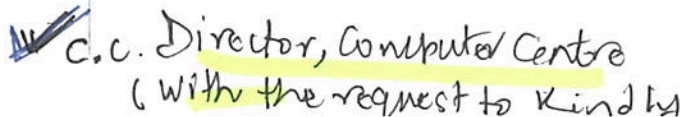 c.c. Director, Computer Centre
(With the request to Kindly